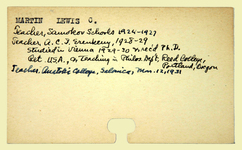 MARTIN LEWIS O.
Teacher, Samokov Schools 1924-1927
Teacher A.C.I. Erenkeuy, 1928-29
Studied in Vienna 1929-30 & rec'd Ph.D.
Ret. USA., & teaching in Philos. Dept. Reed College,
Portland, Oregon
Teacher, Anatolia College, Salonica, 12, 1931